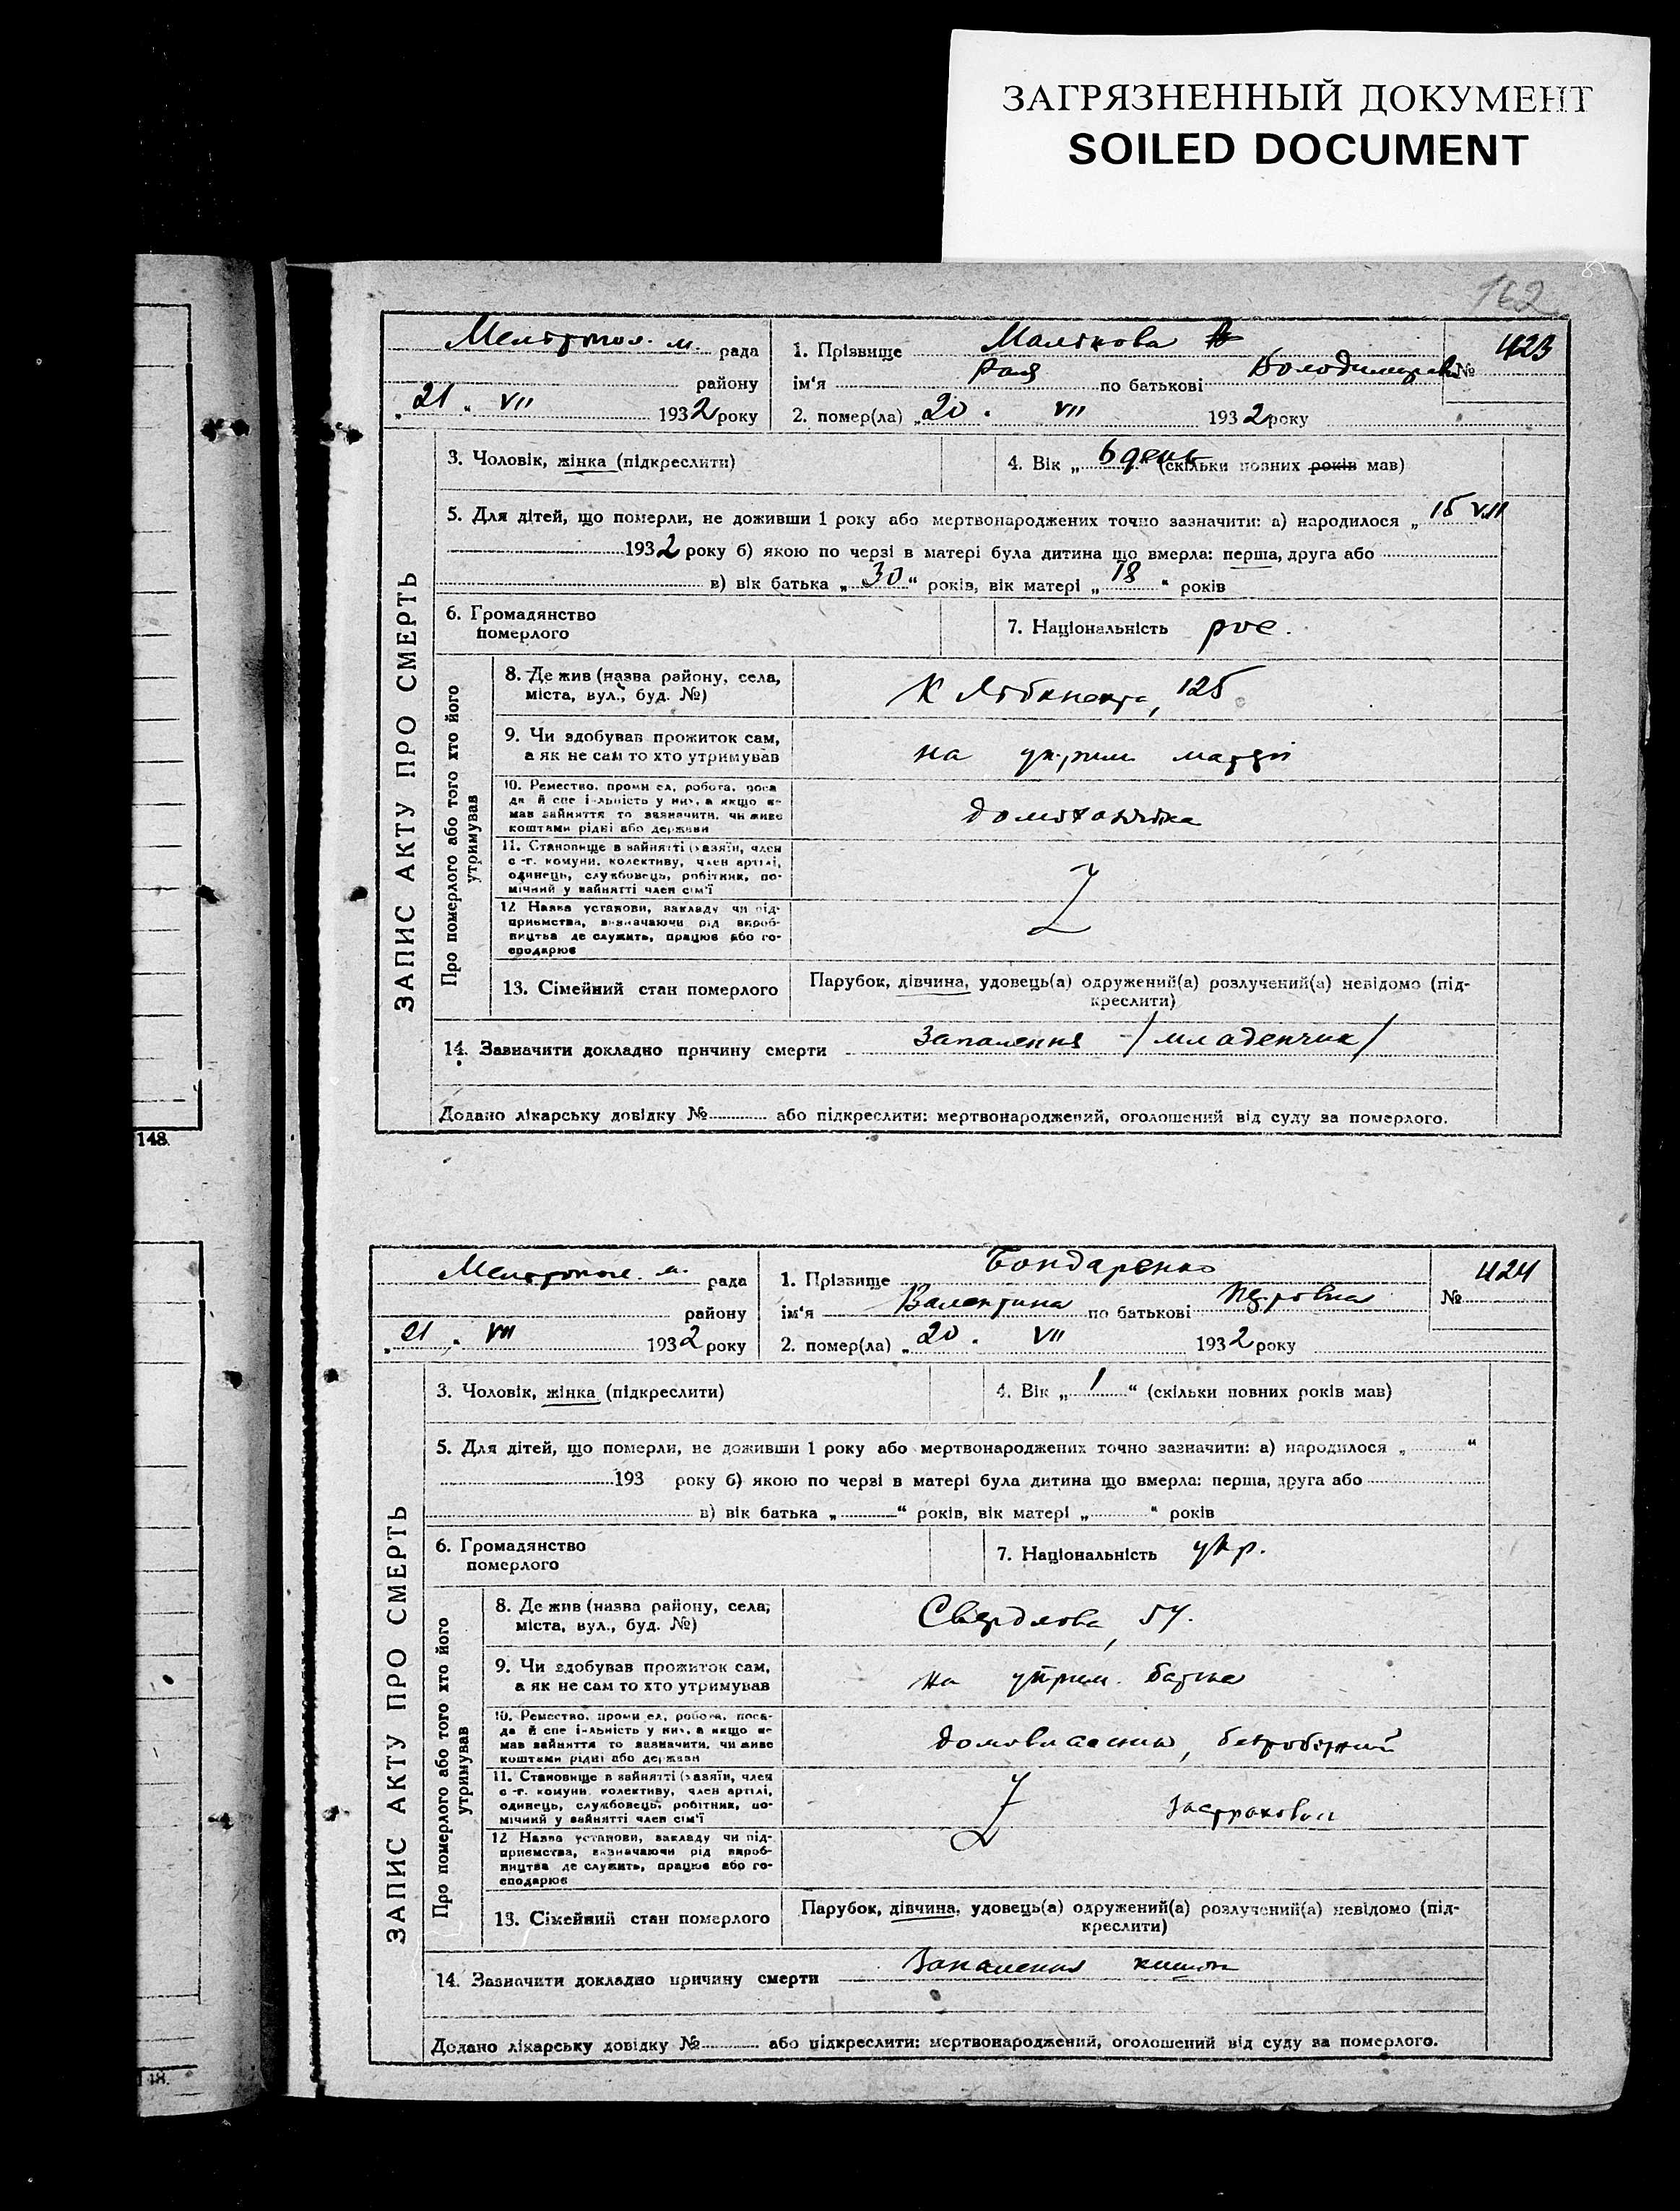 ЗАГРЯЗНЕННЫЙ ДОКУМЕНТ
SOILED DOCUMENT
162
148.
Мелітопол. м. рада
району
„21„ VII 1932 року
1. Прізвище Малікова
ім'я Рая по батькові Володимирівн
№ 423
2. помер(ла) „20„ VII 1932 року
ЗАПИС АКТУ ПРО СМЕРТЬ
3. Чоловік, жінка (підкреслити)
4. Вік „6 день“ (скільки повних років мав)
5. Для дітей, що померли, не доживши 1 року або мертвонароджених точно зазначити: а) народилося „15 VII
1932 року б) якою по черзі в матері була дитина що вмерла: перша, друга або
в) вік батька „30“ років, вік матері „18“ років
6. Громадянство померлого
7. Національність рос.
Про померлого або того хто його утримував
8. Де жив (назва району, села,
міста, вул., буд. №)
К Лібкнехта, 125
9. Чи здобував прожиток сам,
а як не сам то хто утримував
на утрим матері
10. Ремество, промисел, робота, поса-
да й спеціяльність у них, а якщо не
мав зайняття то зазначити, чи живе
коштами рідні або держави
домохазяйка
11. Становище в зайнятті (хазяїн, член
с.-г. комуни, колективу, член артілі,
одинець, службовець, робітник, по-
мічний у зайнятті член сім'ї
12 Назва установи, закладу чи під-
приємства, визначаючи рід вироб-
ництва де служить, працює або го-
сподарює
13. Сімейний стан померлого
Парубок, дівчина, удовець(а) одружений(а) розлучений(а) невідомо (під-
креслити)
14. Зазначити докладно причину смерти Запалення /младенчик/
Додано лікарську довідку № або підкреслити: мертвонароджений, оголошений від суду за померлого.
Мелітопол. м. рада
району
„21„ VII 1932 року
1. Прізвище Бондаренко
ім'я Валентина по батькові Петровна
№ 424
2. помер(ла) „20„ VII 1932 року
ЗАПИС АКТУ ПРО СМЕРТЬ
3. Чоловік, жінка (підкреслити)
4. Вік „1“ (скільки повних років мав)
5. Для дітей, що померли, не доживши 1 року або мертвонароджених точно зазначити: а) народилося „ “
193 року б) якою по черзі в матері була дитина що вмерла: перша, друга або
в) вік батька „ “ років, вік матері „ “ років
6. Громадянство померлого
7. Національність укр.
Про померлого або того хто його утримував
8. Де жив (назва району, села,
міста, вул., буд. №)
Свердлова, 54.
9. Чи здобував прожиток сам,
а як не сам то хто утримував
на утрим. батька
10. Ремество, промисел, робота, поса-
да й спеціяльність у них, а якщо не
мав зайняття то зазначити, чи живе
коштами рідні або держави
домовласник, безробітний
11. Становище в зайнятті (хазяїн, член
с.-г. комуни, колективу, член артілі,
одинець, службовець, робітник, по-
мічний у зайнятті член сім'ї
12 Назва установи, закладу чи під-
приємства, визначаючи рід вироб-
ництва де служить, працює або го-
сподарює
13. Сімейний стан померлого
Парубок, дівчина, удовець(а) одружений(а) розлучений(а) невідомо (під-
креслити)
14. Зазначити докладно причину смерти Запалення кишок
Додано лікарську довідку № або підкреслити: мертвонароджений, оголошений від суду за померлого.